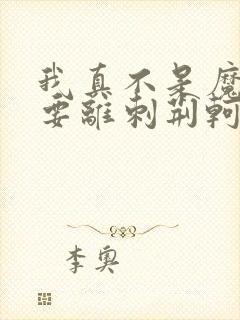 我真不是魔
要離刺荆軻
李奥